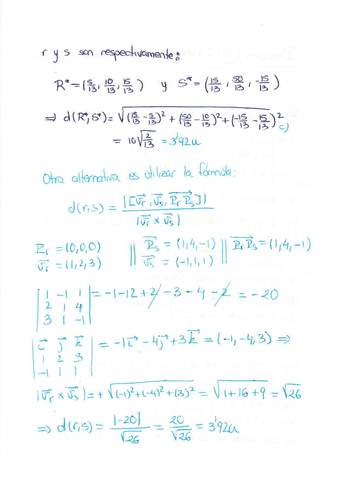 r y s son respectivamente:
R* = (5/13, 10/13, 15/13) y S* = (15/13, 50/13, -15/13)
⇒ d(R*, S*) = √((15/13 - 5/13)² + (50/13 - 10/13)² + (-15/13 - 15/13)²
= 10√(2/13) = 3'92u
Otra alternativa es utilizar la fórmula:
d(r,s) = |[v⃗r, v⃗s, PrPs]| / |v⃗r × v⃗s|
Pr = (0,0,0) || Ps = (1,4,-1) || PrPs = (1,4,-1)
v⃗r = (1,2,3) || v⃗s = (-1,1,1)
|1 -1 1| = -1-12+2-3-4-2 = -20
|2 1 4|
|3 1 -1|
|i⃗ j⃗ k⃗| = -1i⃗ -4j⃗ +3k⃗ = (-1,-4,3) ⇒
|1 2 3|
|-1 1 1|
|v⃗r × v⃗s| = +√((-1)²+(-4)²+(3)²) = √(1+16+9) = √26
⇒ d(r,s) = |-20|/√26 = 20/√26 = 3'92u